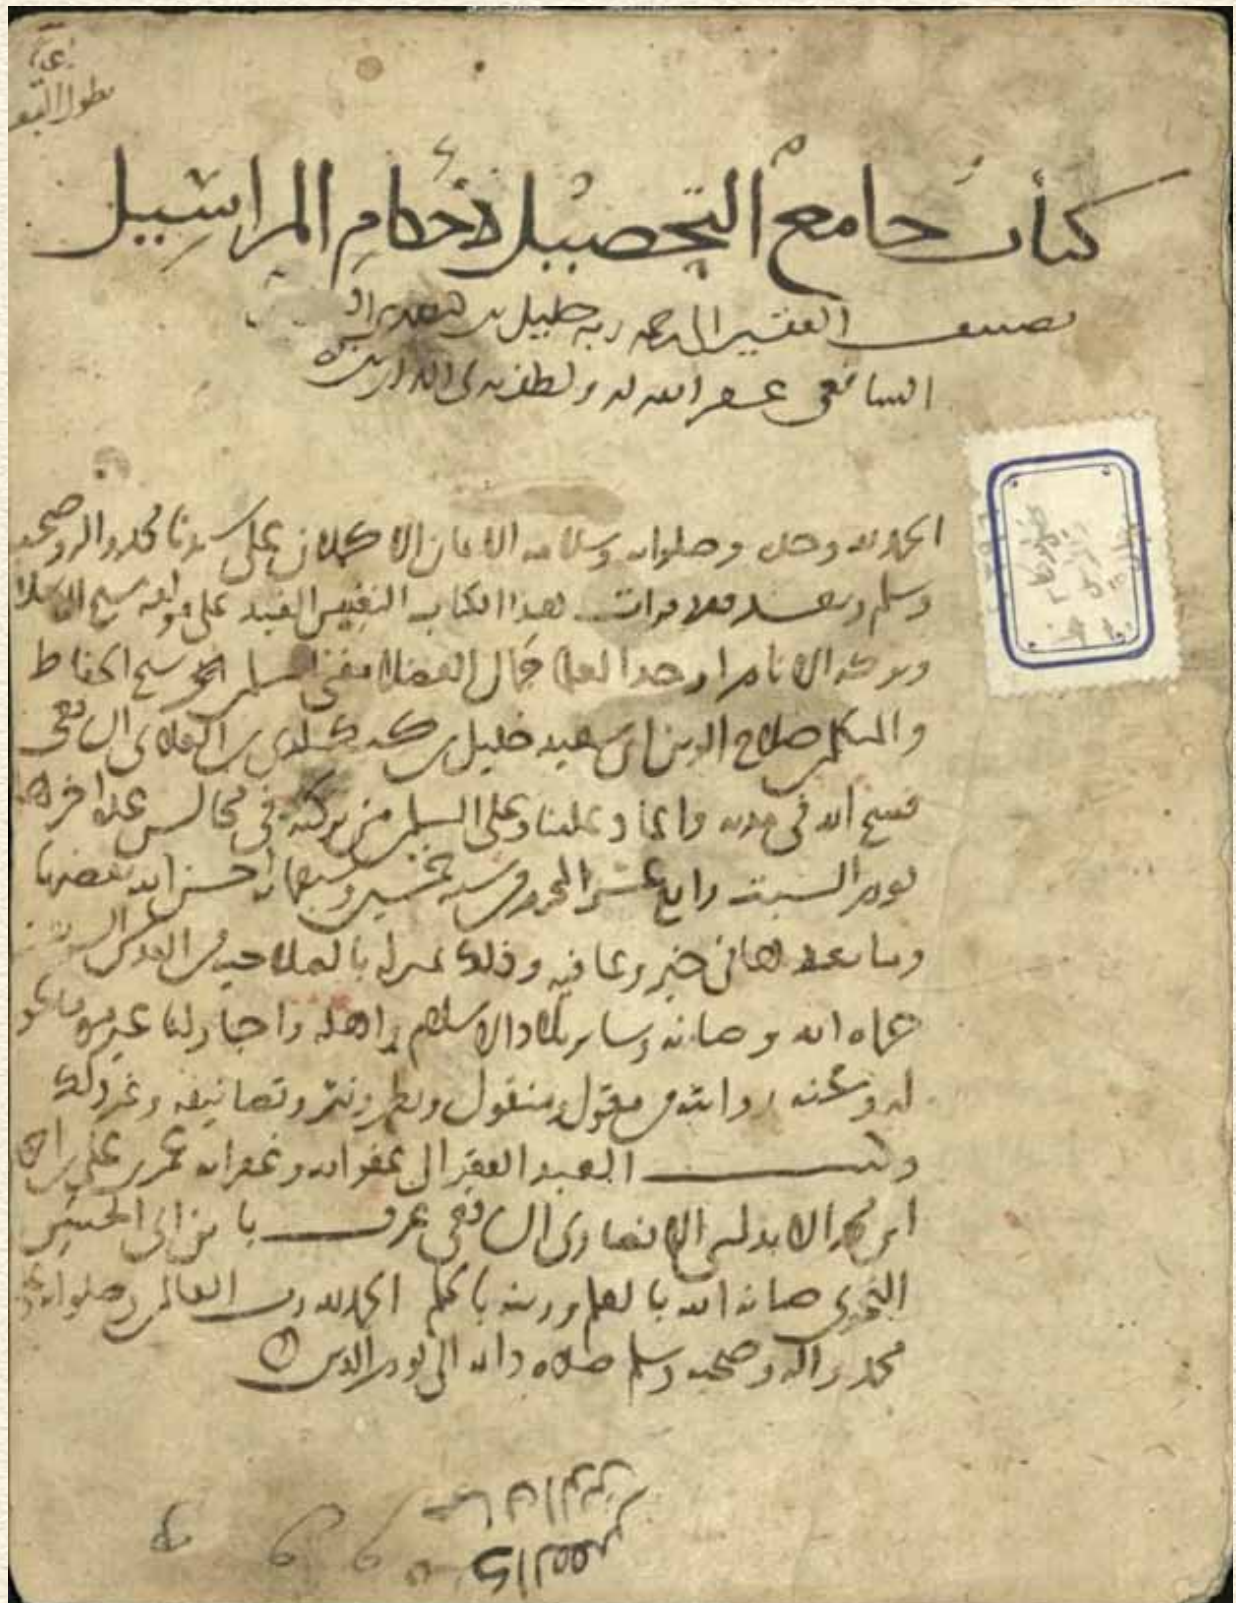 كتاب جامع التحصيل لأحكام المراسيل
تصنيف الفقير الى رحمة ربه خليل بن
الشافعي عفر الله له ولطف به في الدارين
الحمد لله وحده وصلواته وسلامه الاتمان الاكملان على سيدنا محمد واله وصحبه
وسلم وبعد فقد قرات هذا الكتاب النفيس المفيد على مولفه شيخ الاسلام
وبركة الانام اوحد العلما جمال الفضلا مفتي المسلمين شيخ الحفاظ
والمتكلمين صلاح الدين ابي سعيد خليل بن كيكلدي بن العلائي الشافعي
فسح الله في مدته واعاد علينا وعلى المسلمين من بركته في مجالس عدة اخرها
يوم السبت رابع عشر المحرم سنة خمسين وسبعمائة احسن الله تقضيها
وما بعدها في خير وعافية وذلك بمنزله بالصلاحية من القدس الشريف
حماه الله وصانه وسائر بلاد الاسلام واهله واجاز لنا غير مرة ما يجوز
له وعنه روايته من معقول ومنقول ونظم ونثر وتصانيفه وغير ذلك
وكتب العبد الفقير الى عفو الله وغفرانه علي بن
ابن الاندلسي الانصاري الشافعي عرف بابن ابي الحسن
النحوي صانه الله بالعلم وزينه بالحلم الحمد لله رب العالمين وصلواته على
محمد واله وصحبه وسلم صلاة دائمة الى يوم الدين